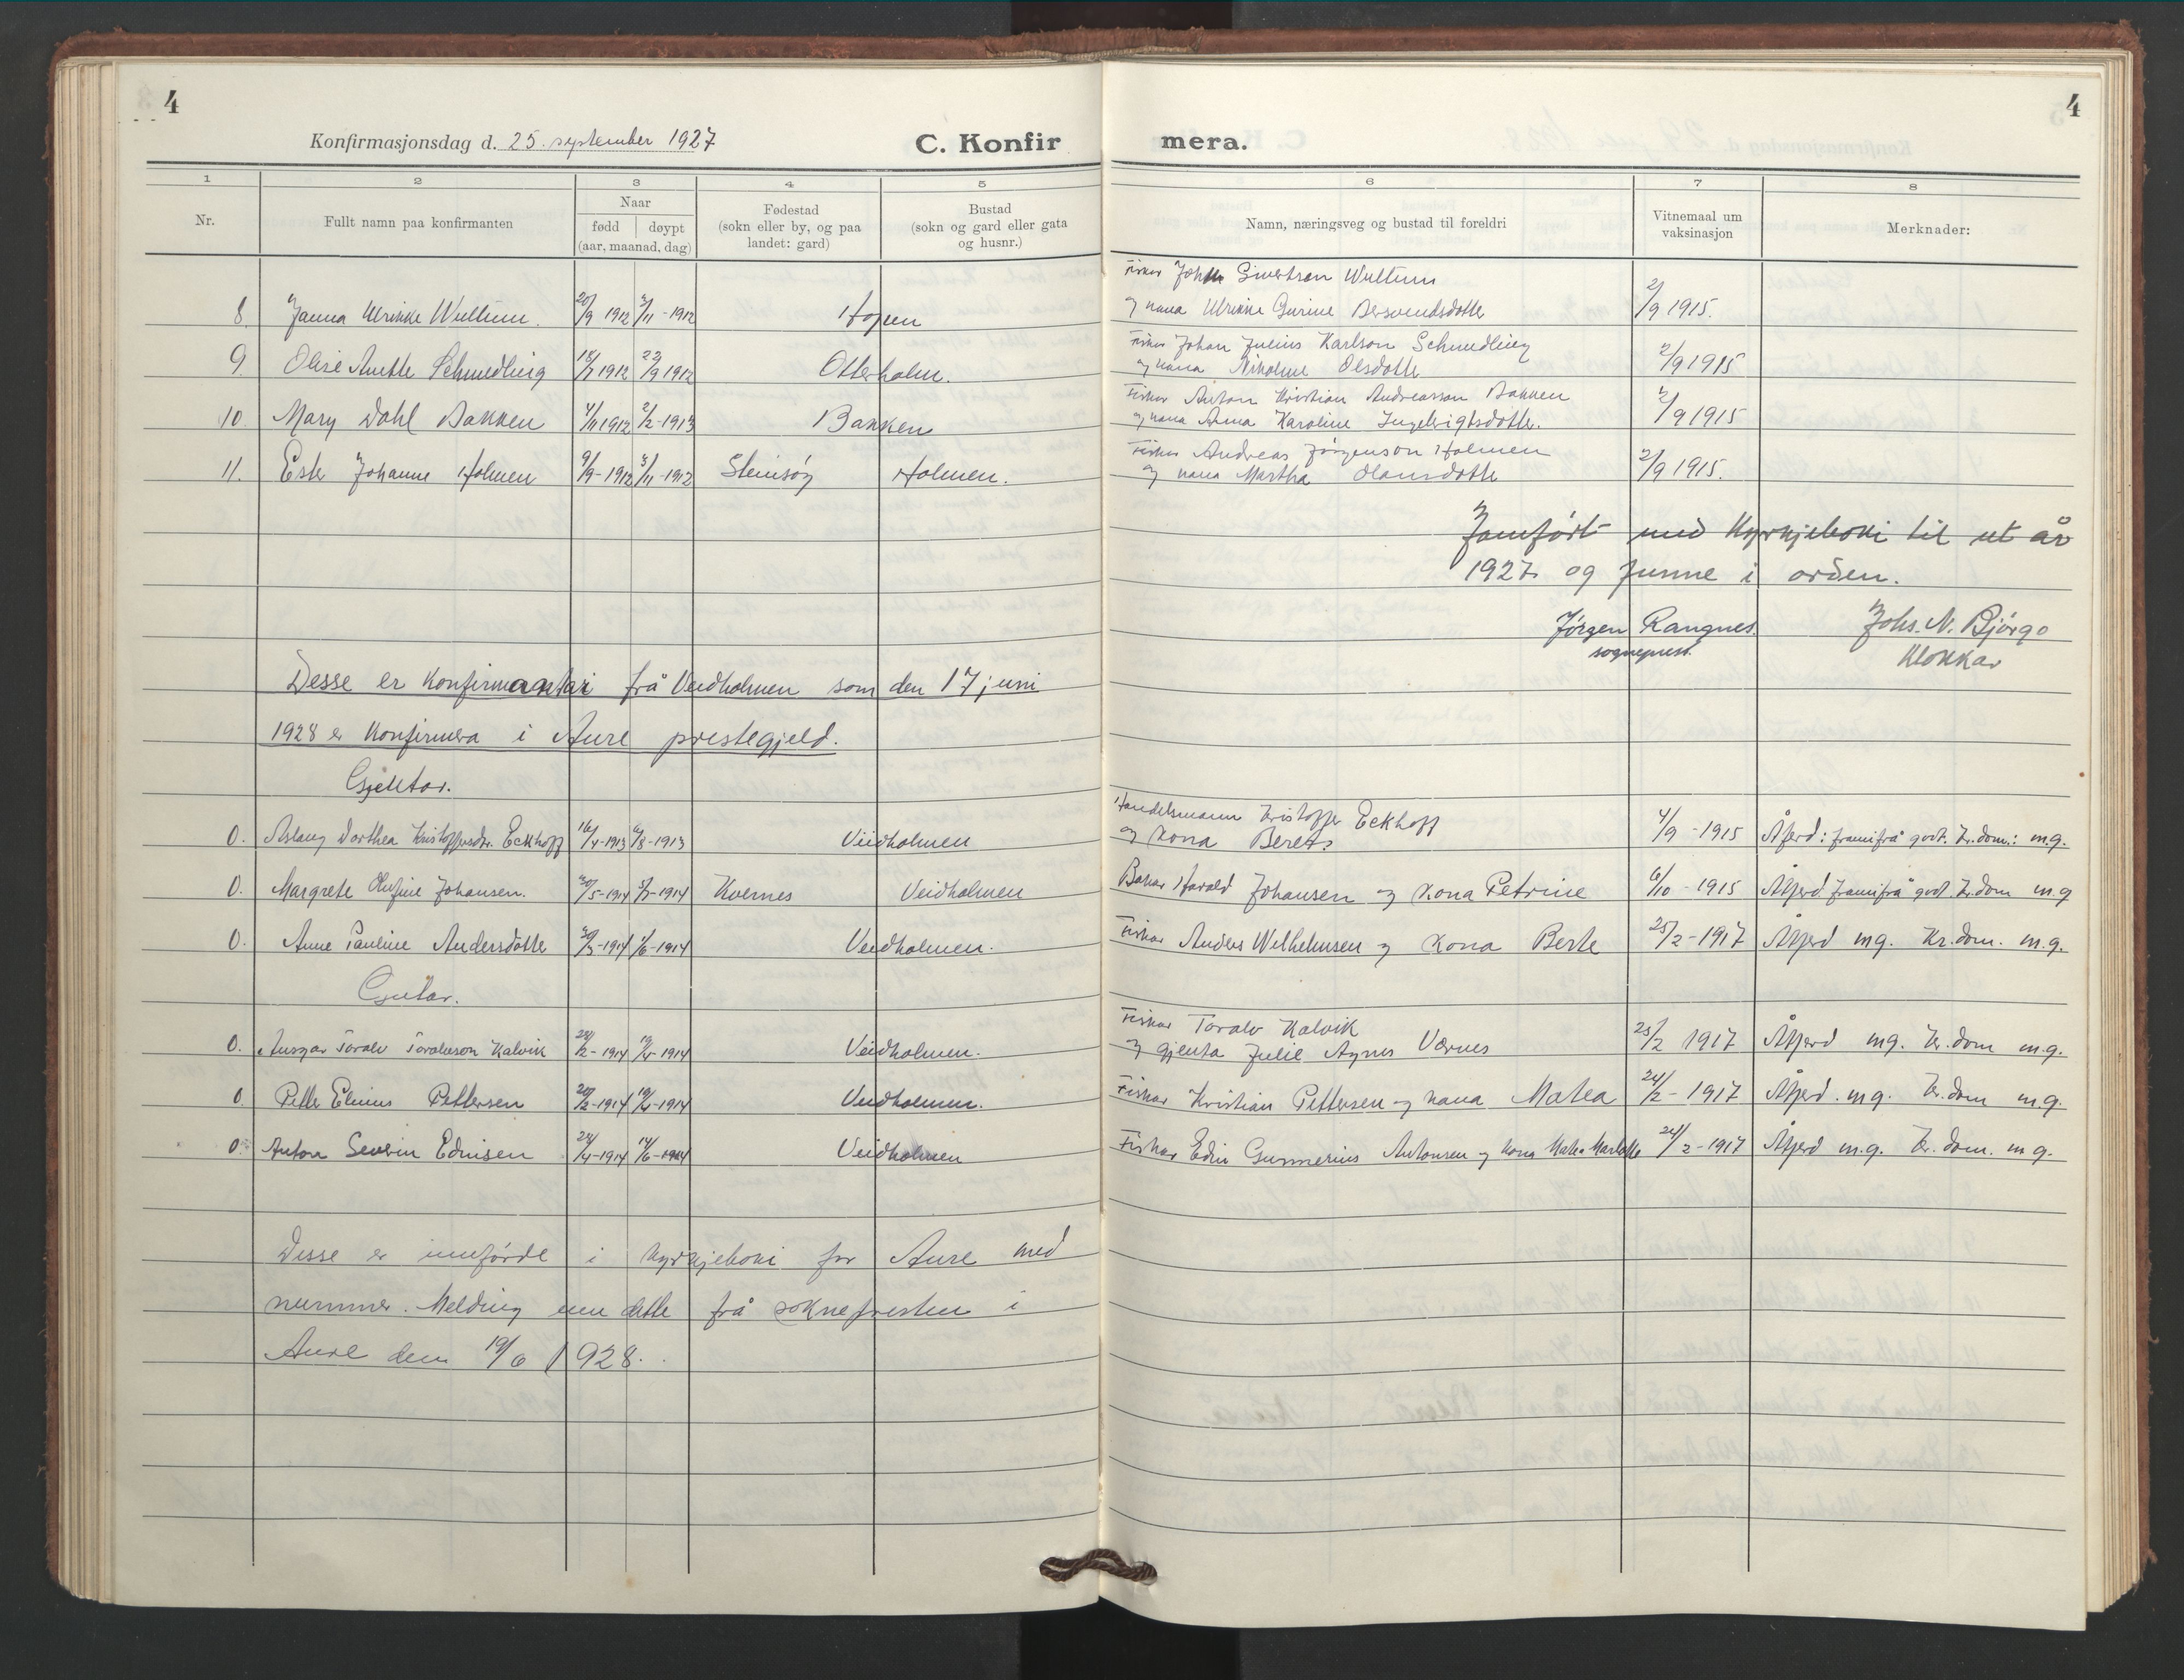 4
4
Konfirmasjonsdag d. 25. september 1927
C. Konfir
mera.
1 2 3 4 5 6 7 8
Nr.
Fullt namn paa konfirmanten
Naar
fødd døypt
(aar, maanad, dag)
Fødestad
(sokn eller by, og paa
landet: gard)
Bustad
(sokn og gard eller gata
og husnr.)
Namn, næringsveg og bustad til foreldri
Vitnemaal um
vaksinasjon
Merknader:
Fiskar Johan Sivertsen Wullum
8. Janna Ulrikke Wullum. 20/9 1912 3/11-1912 Hopen og kona Ulrikke Gurine Bersvendsdotter 2/9 1915.
Fiskar Johan Julius Karlson Schmedling
9. Olise Anette Schmedling 18/7 1912 22/9 1912 Otterholm. og kona Nikoline Olsdotter 2/9 1915
Fiskar Anton Kristian Andreasson Bakken
10. Mary Dahl Bakken 4/11 1912 2/2-1913 Bakken og kona Anna Karoline Ingebrigtsdotter. 2/9 1915
Fiskar Andreas Jørgenson Holmen
11. Ester Johanne Holmen 9/9-1912 3/11-1912 Steinsøy Holmen. og kona Martha Hansdotter 2/9 1915.
Jamført med Kyrkjeboki til ut år
1927 og funne i orden.
Jørgen Rangnes. Johs. N. Bjørgo
sogneprest. Klokkar
Desse er konfirmantar frå Veidholmen som den 17 juni
1928 er konfirmera i Aure prestegjeld.
Gjentor.
Handelsmann Kristoffer Eckhoff
0. Aslaug Dorthea Kristoffersdr. Eckhoff 16/4-1913 6/8-1913 Veidholmen og kona Beret. 4/9-1915 Åferd: framifrå godt. Kr.dom.: m.g.
0. Margrete Olufine Johansen. 20/5-1914 5/7-1914 Kvernes Veidholmen Bakar Harald Johansen og kona Petrine 6/10-1915 Åferd framifrå godt. Kr.dom m.g
0. Anne Pauline Andersdotter 30/3-1914 1/6-1914 Veidholmen. Fiskar Anders Wilhelmsen og kona Berte 25/2-1917 Åferd mg. Kr.dom. m.g.
Gutar.
Fiskar Toralv Kalvik
0. Ansgar Toralv Toralvson Kalvik 28/2-1914 19/4-1914 Veidholmen. og gjenta Julie Agnes Værnes 25/2 1917 Åferd mg. Kr.dom m.g.
0. Petter Elinius Pettersen 20/2-1914 19/4-1914 Veidholmen. Fiskar Kristian Pettersen og kona Matea 24/2-1917 Åferd. m.g. Kr.dom m.g.
0. Anton Severin Edinsen 28/4-1914 14/6-1914 Veidholmen Fiskar Edin Gunnerius Antonsen og kona 24/2-1917 Åferd m.g. Kr.dom. m g.
Desse er innførde i Kyrkjeboki for Aure med
nummer. Melding um dette frå soknepresten i
Aure dem 19/6 1928.